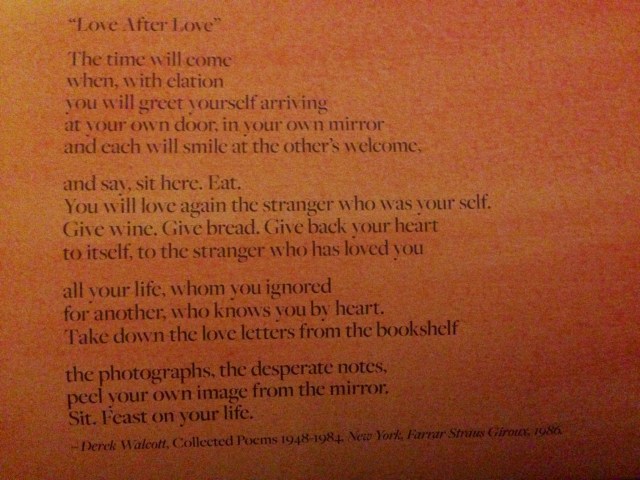 “Love After Love”
The time will come
when, with elation
you will greet yourself arriving
at your own door, in your own mirror
and each will smile at the other's welcome,
and say, sit here. Eat.
You will love again the stranger who was your self.
Give wine. Give bread. Give back your heart
to itself, to the stranger who has loved you
all your life, whom you ignored
for another, who knows you by heart.
Take down the love letters from the bookshelf
the photographs, the desperate notes,
peel your own image from the mirror.
Sit. Feast on your life.
– Derek Walcott, Collected Poems 1948-1984, New York, Farrar Straus Giroux, 1986.